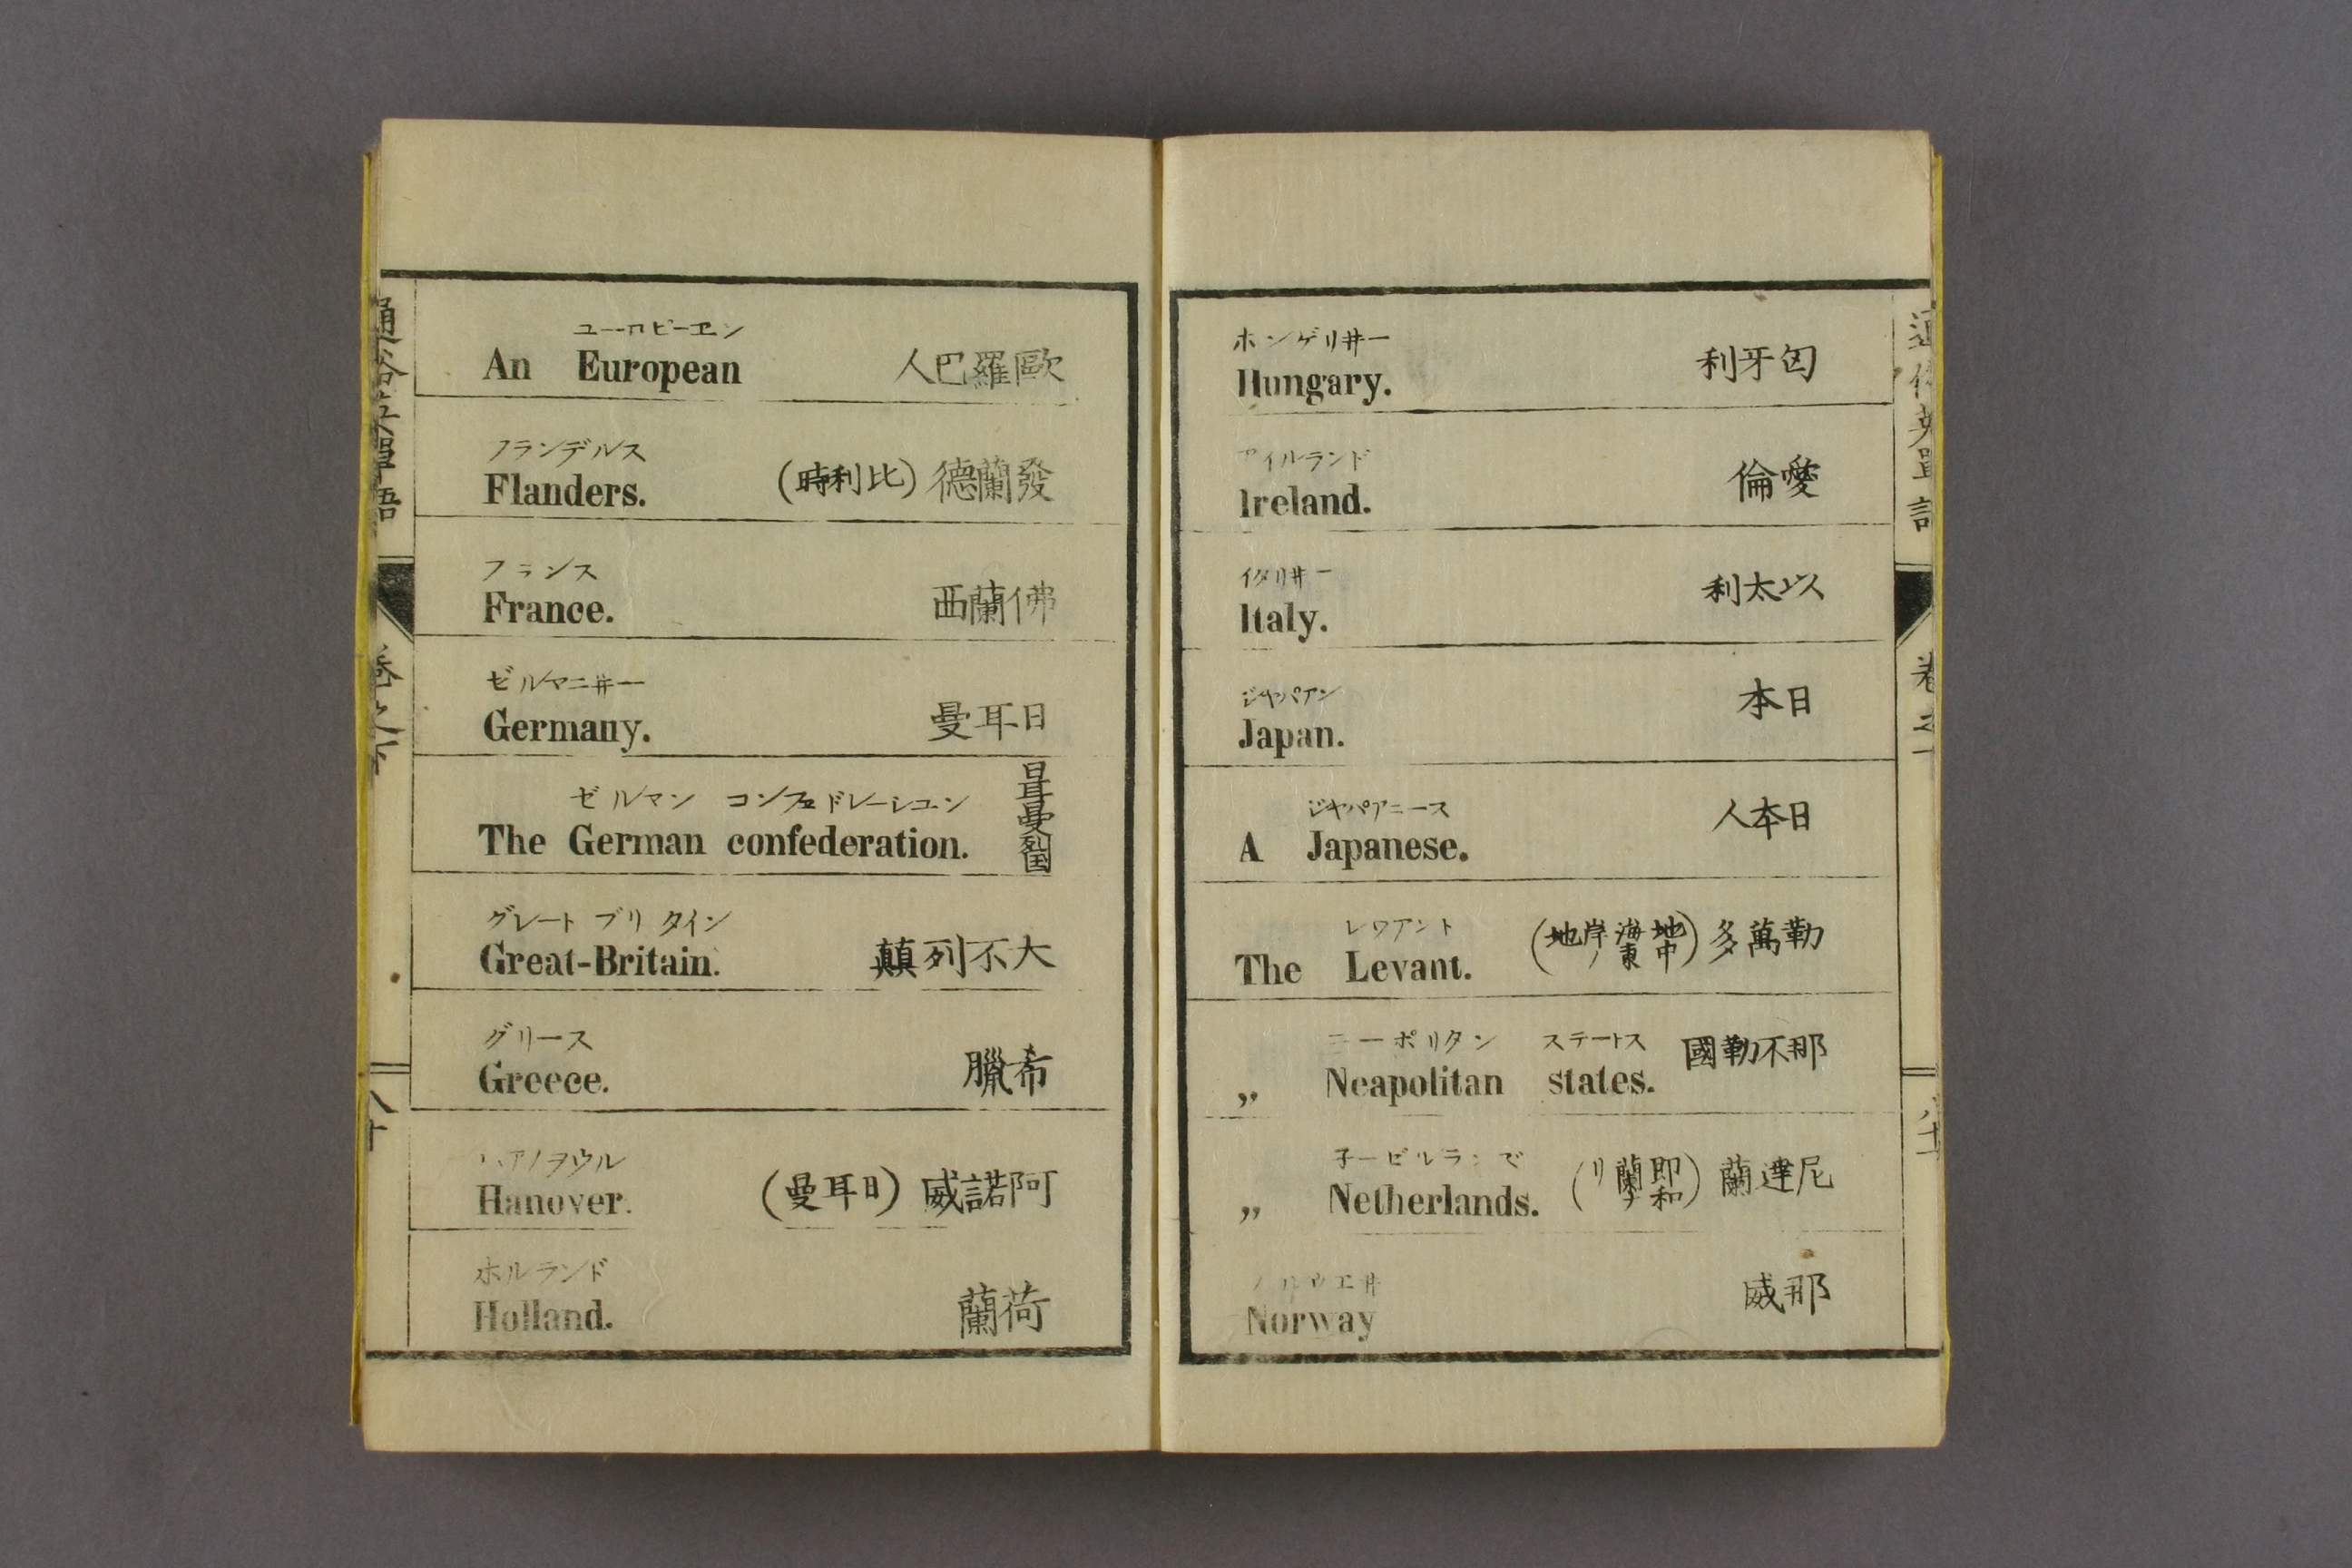 ユーロピーエン
An European 歐羅巴人
フランデルス
Flanders. 發蘭德(比利時)
フランス
France. 佛蘭西
ゼルマニヰー
Germany. 日耳曼
ゼルマン コンフェドレーシュン
The German confederation. 日耳曼列国
グレート ブリタイン
Great-Britain. 大不列顛
グリース
Greece. 希臘
ハアノヲウル
Hanover. 阿諾威(日耳曼)
ホルランド
Holland. 荷蘭
通俗英單語
卷之上
八十
ホンゲリヰー
Hungary. 匈牙利
アイルランド
Ireland. 噯倫
イタリヰー
Italy. 以太利
ジャパアン
Japan. 日本
ジャパアニース
A Japanese. 日本人
レワアント
The Levant. 勒萬多(地中海東岸ノ地)
ニーポリタン ステートス
„ Neapolitan states. 那不勒國
子ーゼルランデ
„ Netherlands. 尼達蘭(即和蘭ナリ)
ノルウエヰ
Norway 那威